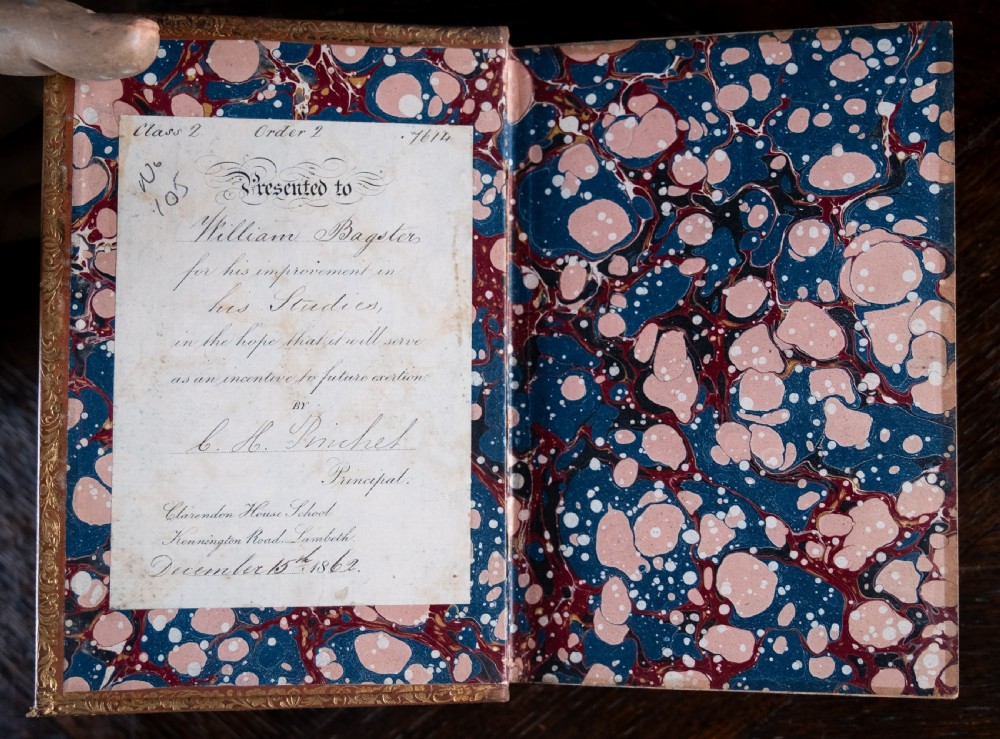 Class 2 Order 2 .7614
No
105
Presented to
William Bagster
for his improvement in
his Studies,
in the hope that it will serve
as an incentive to future exertion
BY
C. H. Pinches
Principal.
Clarendon House School
Kennington Road. Lambeth.
December 15th 1862.